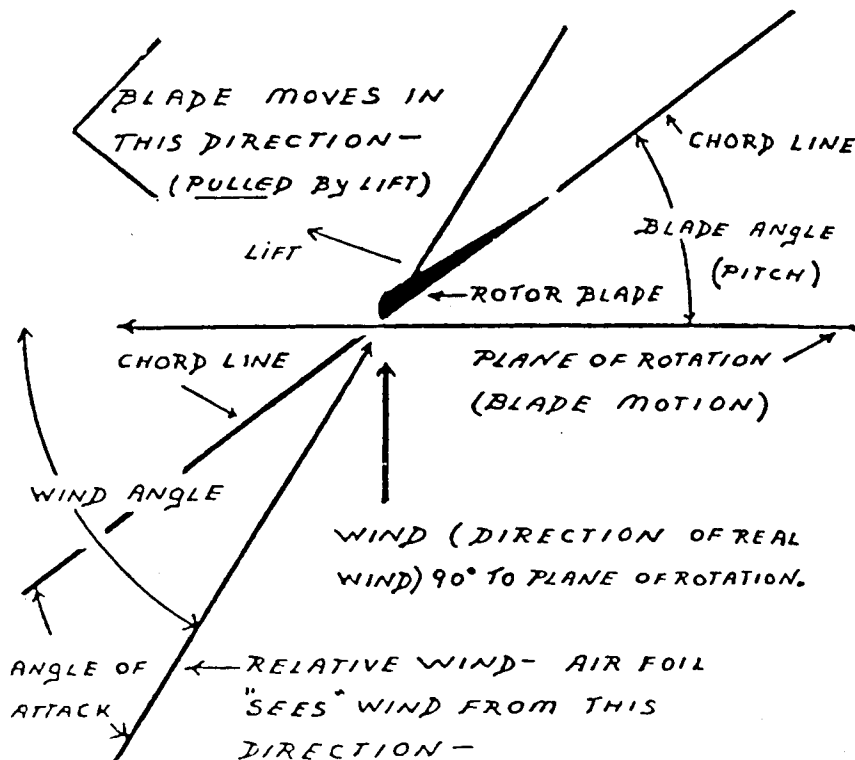 BLADE MOVES IN
THIS DIRECTION-
(PULLED BY LIFT)
CHORD LINE
BLADE ANGLE
(PITCH)
LIFT
ROTOR BLADE
CHORD LINE
PLANE OF ROTATION
(BLADE MOTION)
WIND ANGLE
WIND (DIRECTION OF REAL
WIND) 90° TO PLANE OF ROTATION.
ANGLE OF
ATTACK
RELATIVE WIND- AIR FOIL
"SEES" WIND FROM THIS
DIRECTION-